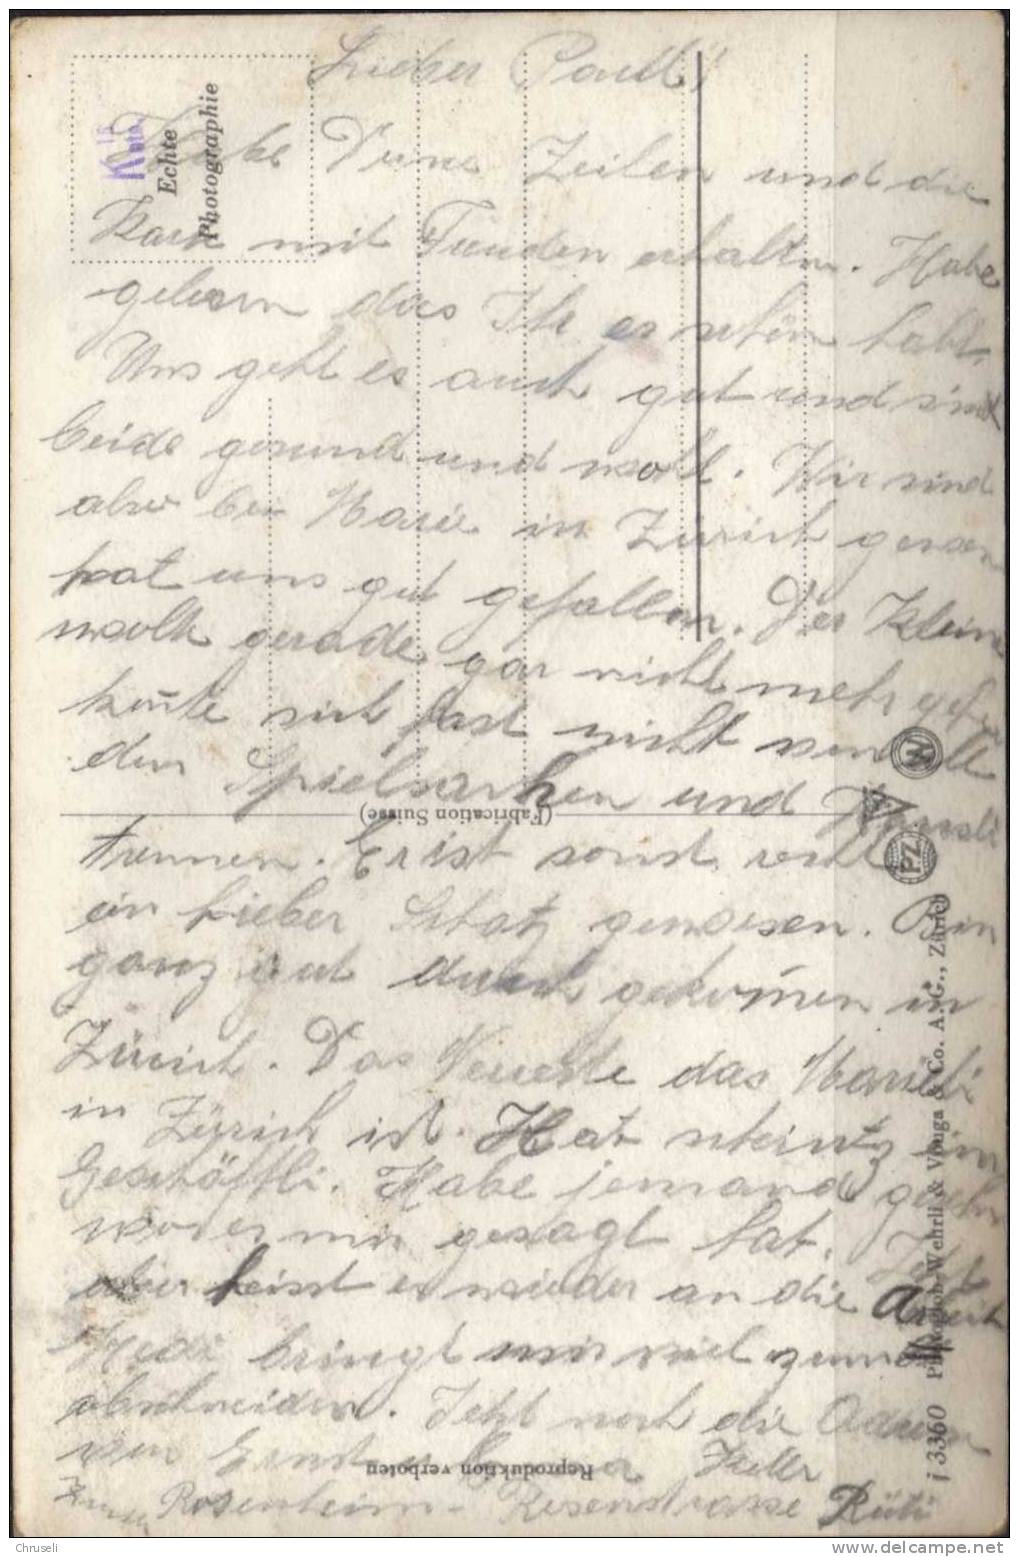 Lieber Pauli!
Habe Deine Zeilen und die
Karte mit Freuden erhalten. Habe
gelesen das Ihr es schön habt.
Uns geht es auch gut und sind
beide gesund und wohl. Wir sind
also bei Marie in Zürich gewesen
hat uns gut gefallen. Der Kleine
wollte gerade gar nicht mehr
konnte sich fast nicht von all
den Spielsachen und
trennen. Er ist sonst recht
ein lieber Schatz gewesen. Bin
ganz gut durch gekommen in
Zürich. Das Neueste das Marieli
in Zürich ist. Hat scheints ein
Geschäftli. Habe jemand
wo er mir gesagt hat. Jetzt
aber heisst es wieder an die Arbeit
Hedi bringt mir viel zum
abschneiden. Jetzt noch die Adresse
von Ernst Keller
Rosenheim - Rosenstrasse Rüti
Echte
Photographie
(Fabrication Suisse)
Reproduktion verboten
W
PZ
j 3360 Photoglob-Wehrli & Vouga & Co. A. G., Zürich
Chruseli
www.delcampe.net